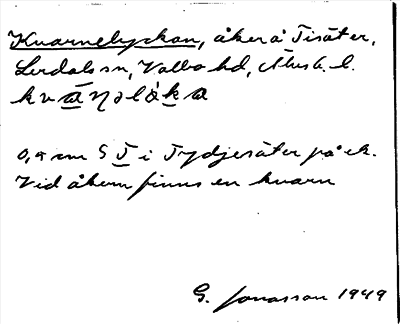 Kvarnelyckan, åker å Tisäter,
Lerdals sn, Valbo hd, Älvsb. l.
kvāṇəlåka
0,9 cm S T i Tydjesäter på ek.
Vid åkern finns en kvarn
G. Jonasson 1949